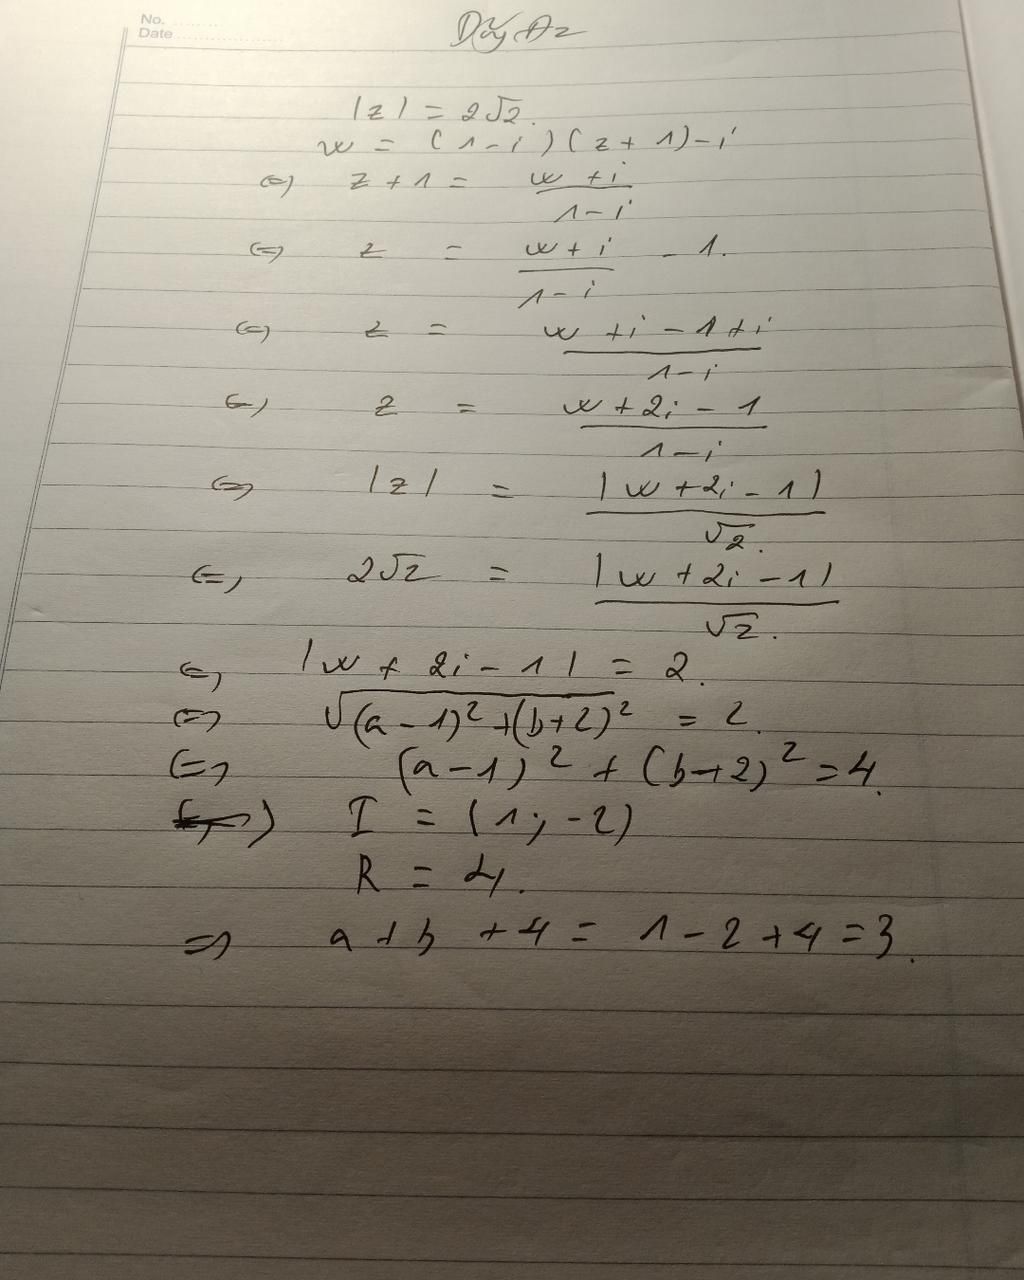 No. ..........
Date ......................
|z| = 2√2.
w = (1-i)(z+1)-i
<=> z+1 = (w+i)/(1-i)
<=> z = (w+i)/(1-i) - 1.
<=> z = (w+i-1+i)/(1-i)
<=> z = (w+2i-1)/(1-i)
<=> |z| = |w+2i-1|/√2.
<=> 2√2 = |w+2i-1|/√2.
<=> |w+2i-1| = 2.
<=> √((a-1)²+(b+2)²) = 2.
<=> (a-1)² + (b+2)² = 4.
I = (1; -2)
R = 4.
=> a+b+4 = 1-2+4 = 3.